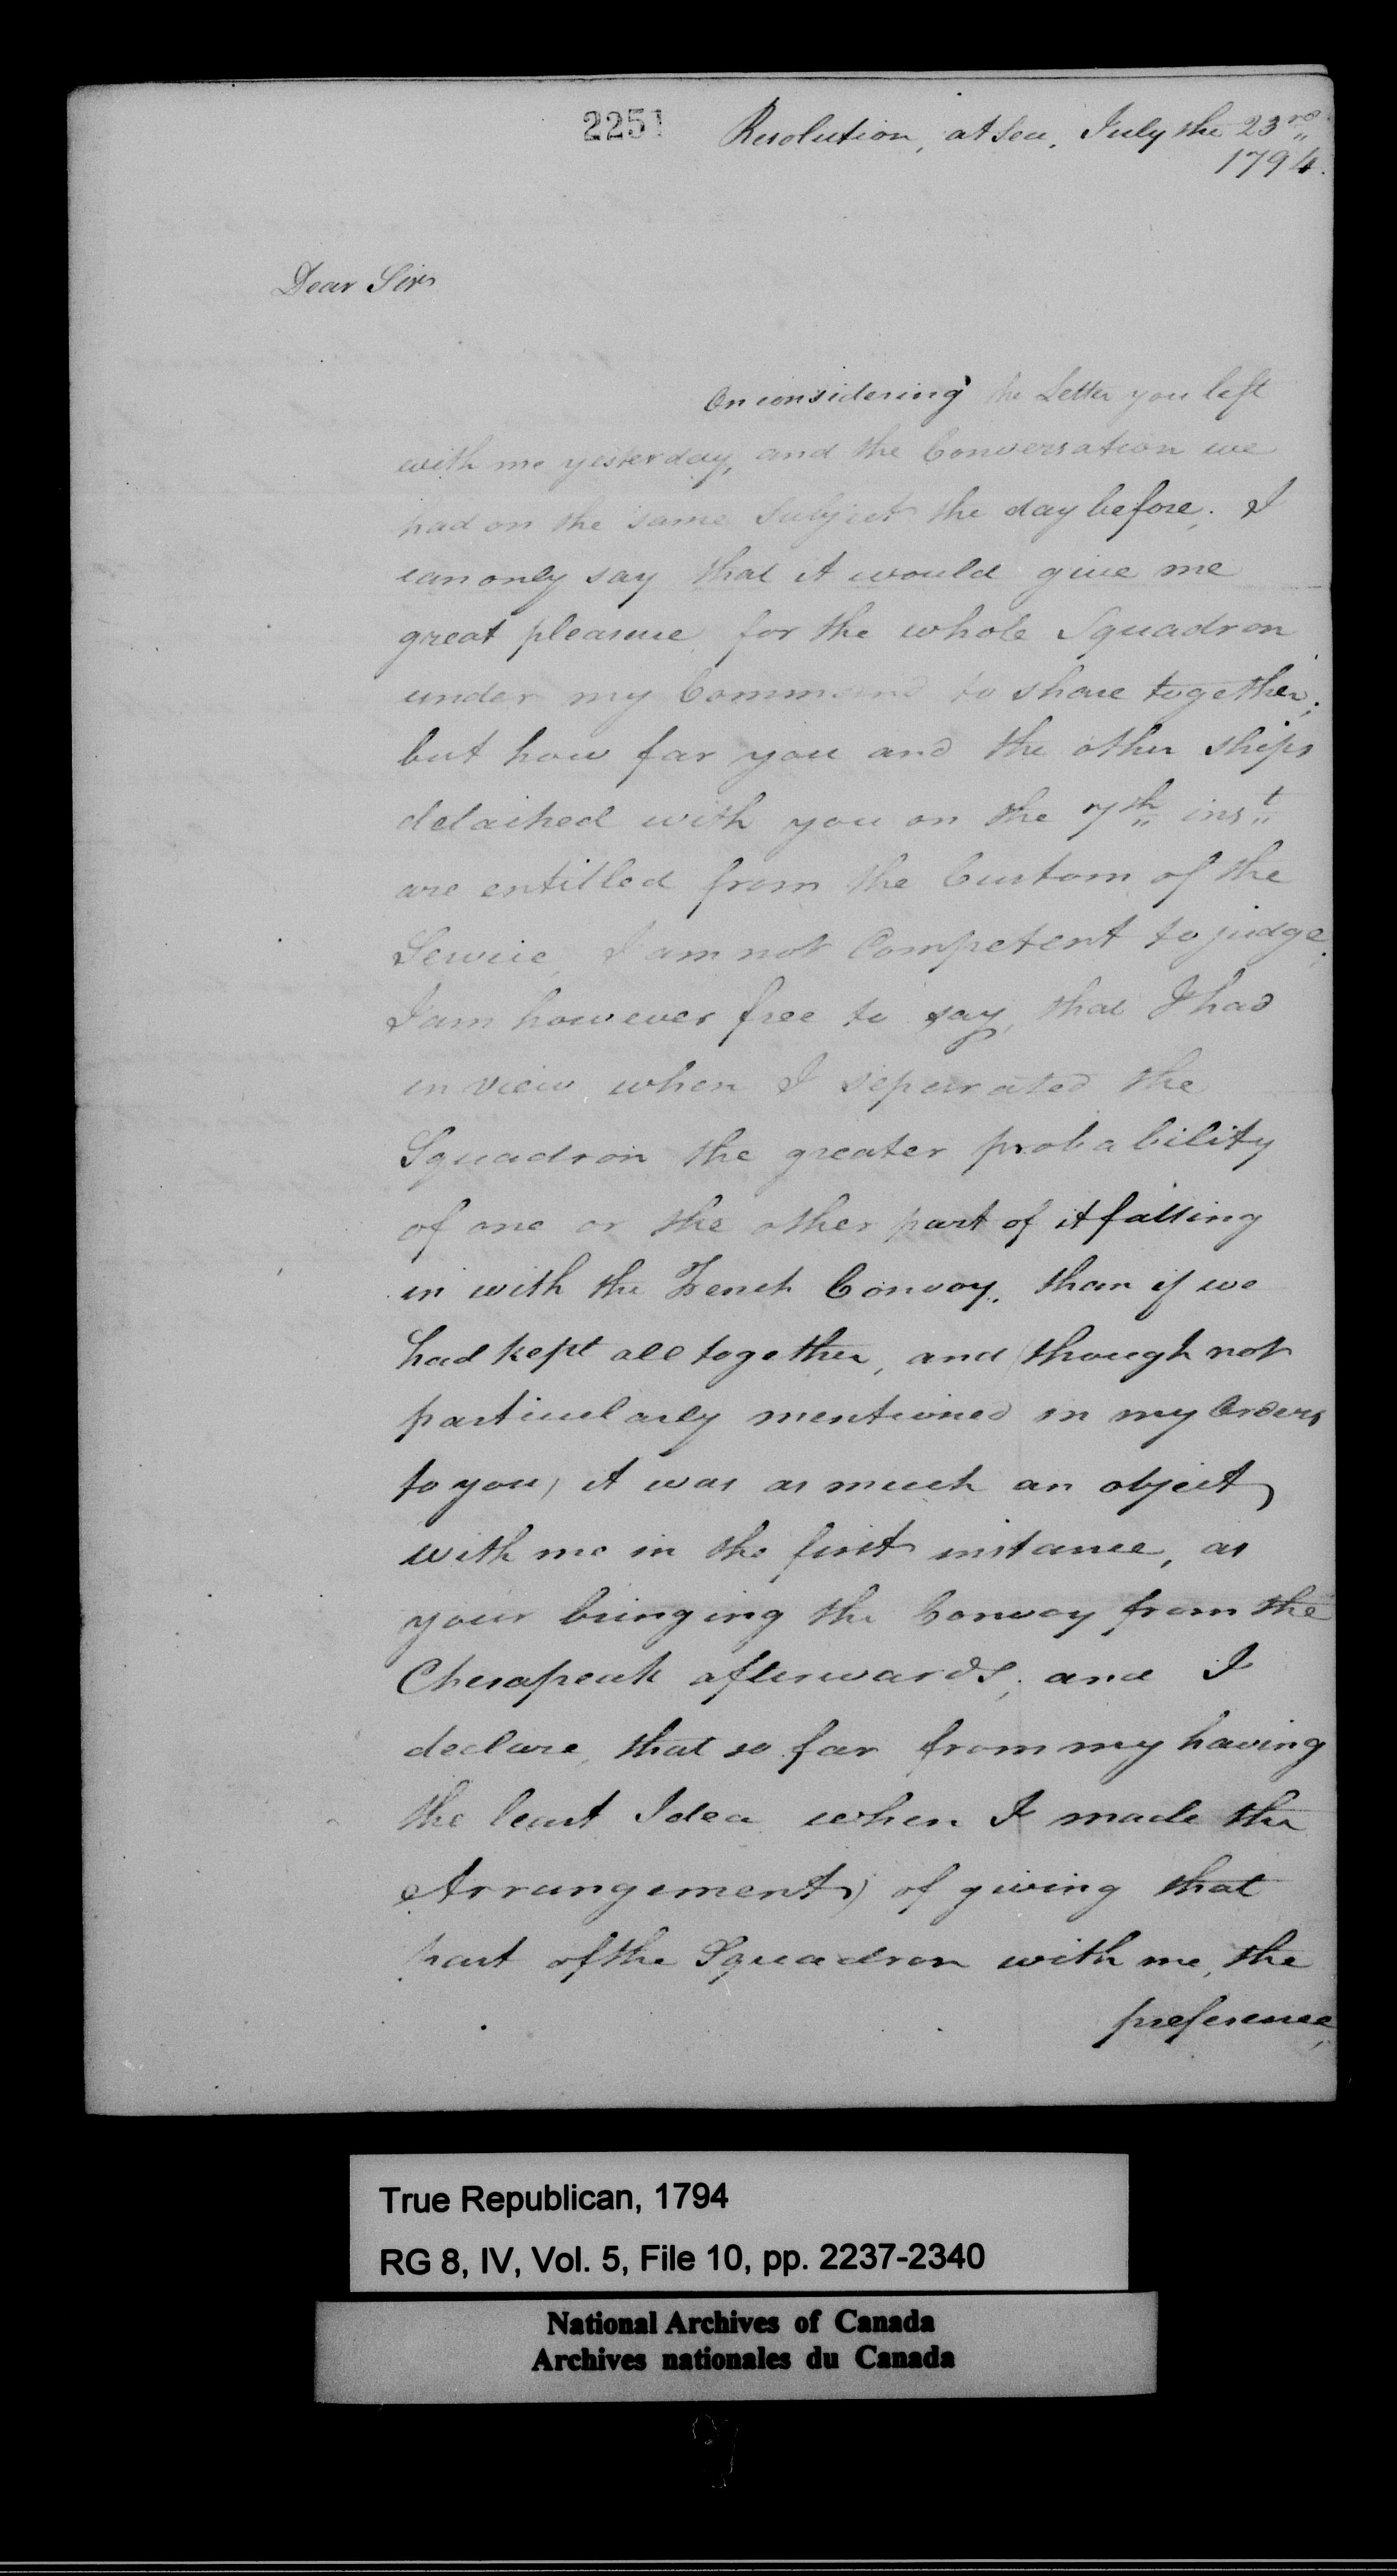 2251
Resolution, at Sea, July the 23rd
1794.
Dear Sir
On considering the Letter you left
with me yesterday, and the Conversation we
had on the same subject the day before; I
can only say that it would give me
great pleasure for the whole Squadron
under my Command to share together;
but how far you and the other ships
detached with you on the 7th inst
are entitled from the Custom of the
Service, I am not Competent to judge;
I am however free to say, that I had
in view when I separated the
Squadron the greater probability
of one or the other part of it falling
in with the French Convoy, than if we
had kept all together, and (though not
particularly mentioned in my Orders
to you) it was as much an object
with me in the first instance, as
your bringing the Convoy from the
Chesapeak afterwards; and I
declare, that so far from my having
the least Idea when I made the
Arrangement) of giving that
part of the Squadron with me, the
preference,
True Republican, 1794
RG 8, IV, Vol. 5, File 10, pp. 2237-2340
National Archives of Canada
Archives nationales du Canada